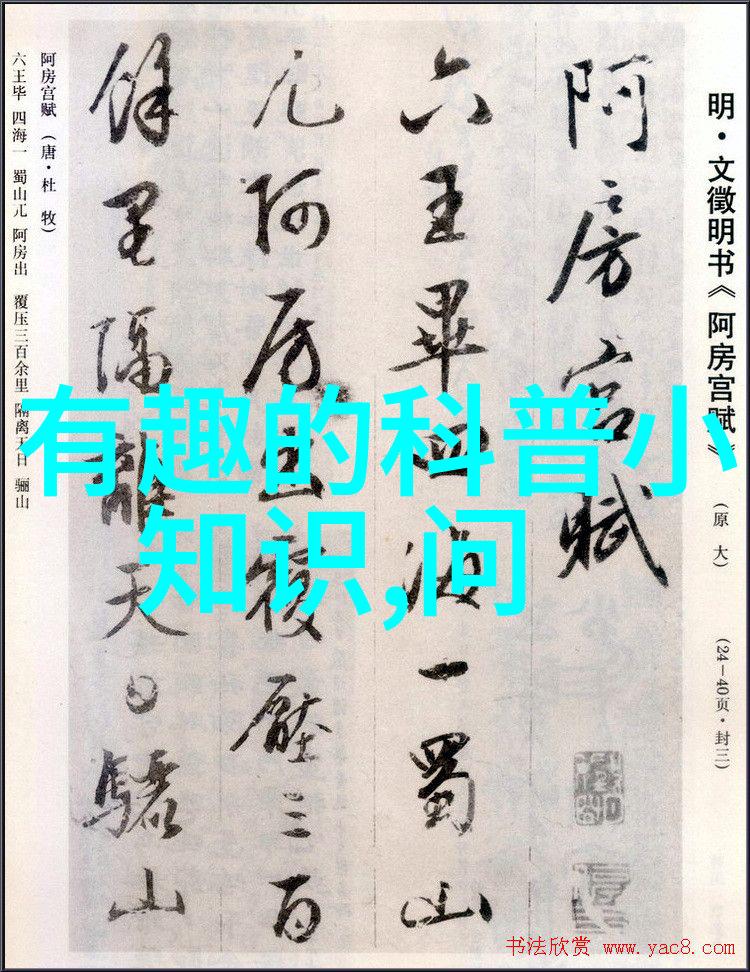 明·文徵明书《阿房宫赋》(原大)(24—40页·封三)
阿房宮賦
六王畢四海一蜀山
兀阿房出覆壓三百
餘里隔離天日驪山
阿房宫赋(唐·杜 牧)
六王毕 四海一 蜀山兀 阿房出 覆压三百余里 隔离天日 骊山
有趣的科普小
知识,问
书法欣赏 www.yac8.com